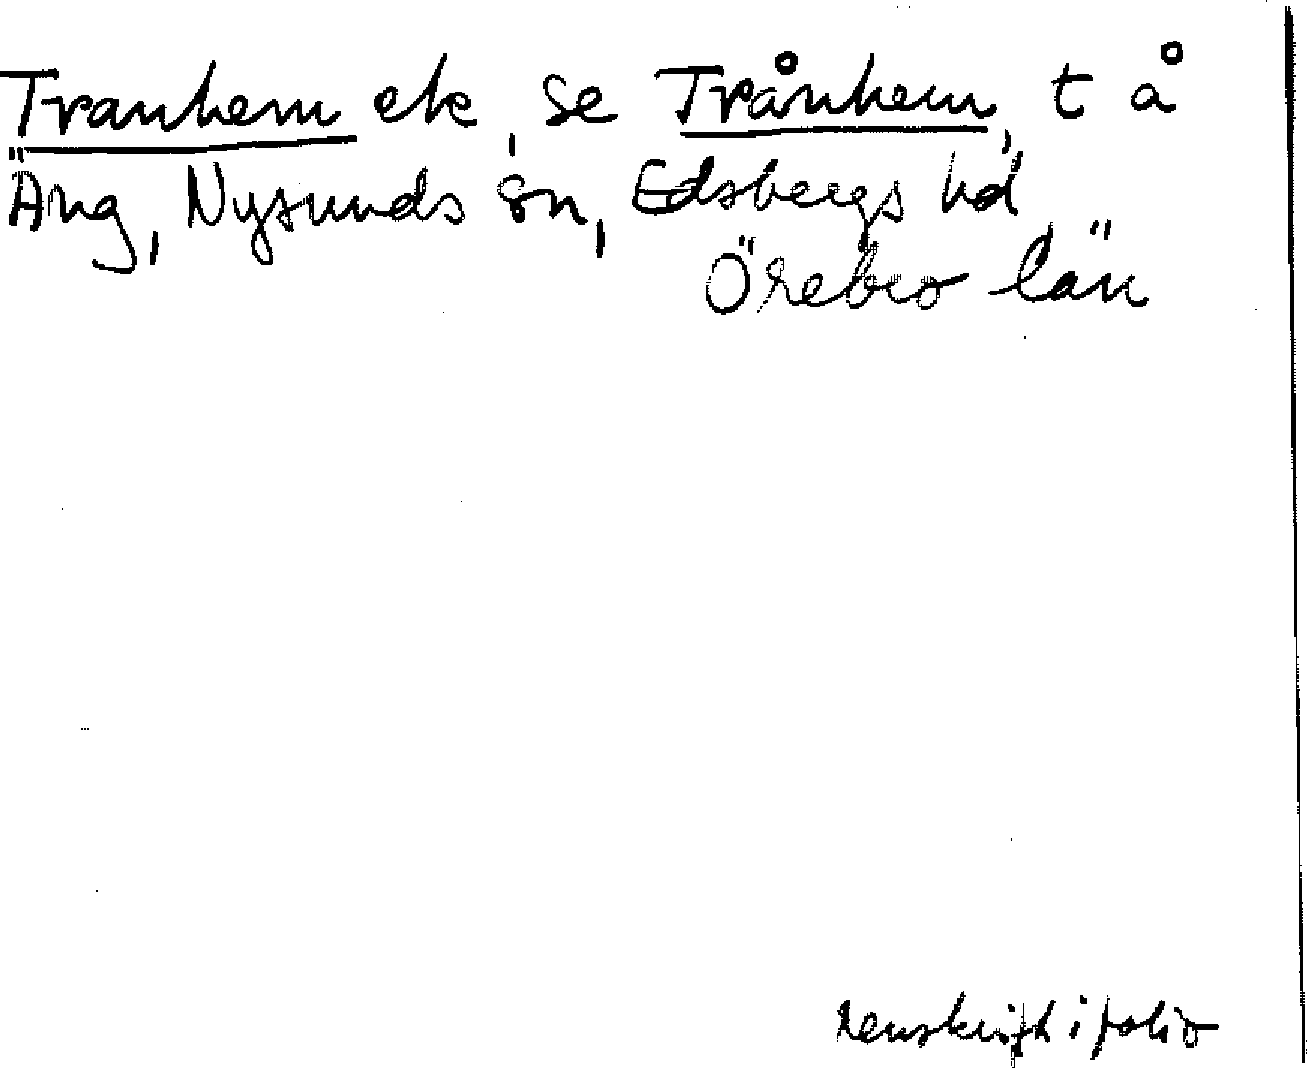 Tranhem ek, se Trånhem, t å
Äng, Nysunds sn, Edsbergs hd
Örebro län
renskrift i folio